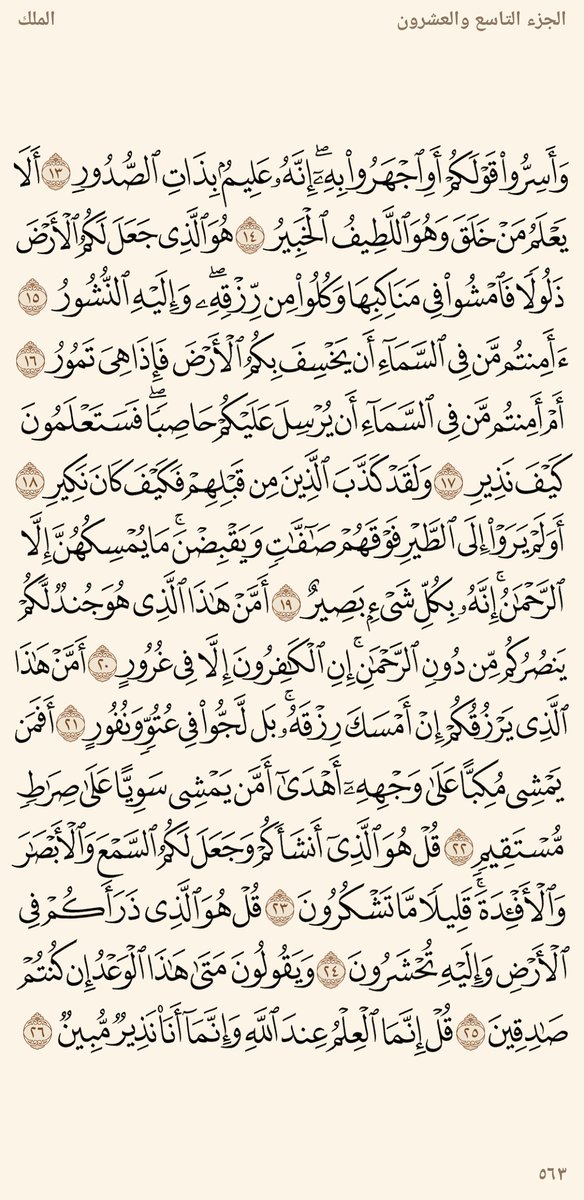 الجزء التاسع والعشرون
الملك
وَأَسِرُّوا۟ قَوْلَكُمْ أَوِ ٱجْهَرُوا۟ بِهِۦٓ ۖ إِنَّهُۥ عَلِيمٌۢ بِذَاتِ ٱلصُّدُورِ ١٣ أَلَا
يَعْلَمُ مَنْ خَلَقَ وَهُوَ ٱللَّطِيفُ ٱلْخَبِيرُ ١٤ هُوَ ٱلَّذِى جَعَلَ لَكُمُ ٱلْأَرْضَ
ذَلُولًا فَٱمْشُوا۟ فِى مَنَاكِبِهَا وَكُلُوا۟ مِن رِّزْقِهِۦ ۖ وَإِلَيْهِ ٱلنُّشُورُ ١٥
ءَأَمِنتُم مَّن فِى ٱلسَّمَآءِ أَن يَخْسِفَ بِكُمُ ٱلْأَرْضَ فَإِذَا هِىَ تَمُورُ ١٦
أَمْ أَمِنتُم مَّن فِى ٱلسَّمَآءِ أَن يُرْسِلَ عَلَيْكُمْ حَاصِبًا ۖ فَسَتَعْلَمُونَ
كَيْفَ نَذِيرِ ١٧ وَلَقَدْ كَذَّبَ ٱلَّذِينَ مِن قَبْلِهِمْ فَكَيْفَ كَانَ نَكِيرِ ١٨
أَوَلَمْ يَرَوْا۟ إِلَى ٱلطَّيْرِ فَوْقَهُمْ صَـٰٓفَّـٰتٍ وَيَقْبِضْنَ ۚ مَا يُمْسِكُهُنَّ إِلَّا
ٱلرَّحْمَـٰنُ ۚ إِنَّهُۥ بِكُلِّ شَىْءٍۭ بَصِيرٌ ١٩ أَمَّنْ هَـٰذَا ٱلَّذِى هُوَ جُندٌ لَّكُمْ
يَنصُرُكُم مِّن دُونِ ٱلرَّحْمَـٰنِ ۚ إِنِ ٱلْكَـٰفِرُونَ إِلَّا فِى غُرُورٍ ٢٠ أَمَّنْ هَـٰذَا
ٱلَّذِى يَرْزُقُكُمْ إِنْ أَمْسَكَ رِزْقَهُۥ ۚ بَل لَّجُّوا۟ فِى عُتُوٍّ وَنُفُورٍ ٢١ أَفَمَن
يَمْشِى مُكِبًّا عَلَىٰ وَجْهِهِۦٓ أَهْدَىٰٓ أَمَّن يَمْشِى سَوِيًّا عَلَىٰ صِرَٰطٍ
مُّسْتَقِيمٍ ٢٢ قُلْ هُوَ ٱلَّذِىٓ أَنشَأَكُمْ وَجَعَلَ لَكُمُ ٱلسَّمْعَ وَٱلْأَبْصَـٰرَ
وَٱلْأَفْـِٔدَةَ ۖ قَلِيلًا مَّا تَشْكُرُونَ ٢٣ قُلْ هُوَ ٱلَّذِى ذَرَأَكُمْ فِى
ٱلْأَرْضِ وَإِلَيْهِ تُحْشَرُونَ ٢٤ وَيَقُولُونَ مَتَىٰ هَـٰذَا ٱلْوَعْدُ إِن كُنتُمْ
صَـٰدِقِينَ ٢٥ قُلْ إِنَّمَا ٱلْعِلْمُ عِندَ ٱللَّهِ وَإِنَّمَآ أَنَا۠ نَذِيرٌ مُّبِينٌ ٢٦
٥٦٣